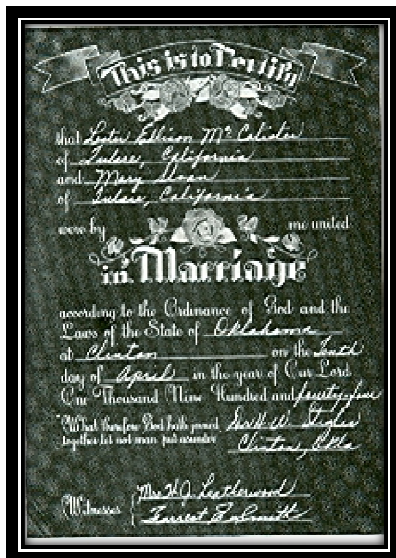 This is to Certify
that Lester Ellison McCalister
of Tulare, California
and Mary Sloan
of Tulare, California
were by me united
in Marriage
according to the Ordinance of God and the
Laws of the State of Oklahoma
at Clinton on the Tenth
day of April in the year of Our Lord
One Thousand Nine Hundred and
"What therefore God hath joined
together let not man put asunder
Clinton, Okla
Mrs H. J. Leatherwood
Witnesses
Forrest